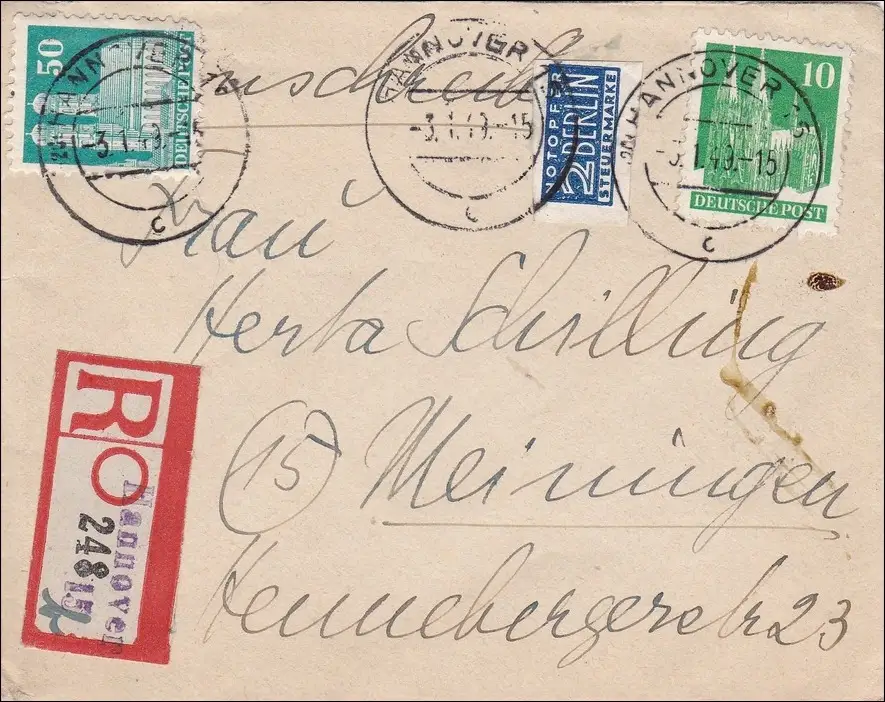 50
DEUTSCHE POST
Einschreiben
HANNOVER
-3.1.49.-15
c
HANNOVER
-3.1.49.-15
c
NOTOPFER
2 BERLIN
STEUERMARKE
10
DEUTSCHE POST
HANNOVER 15
-3.1.49.-15
c
Frau
Herta Schilling
(15) Meiningen
Hennebergerstr 23
R
Hannover
15
248